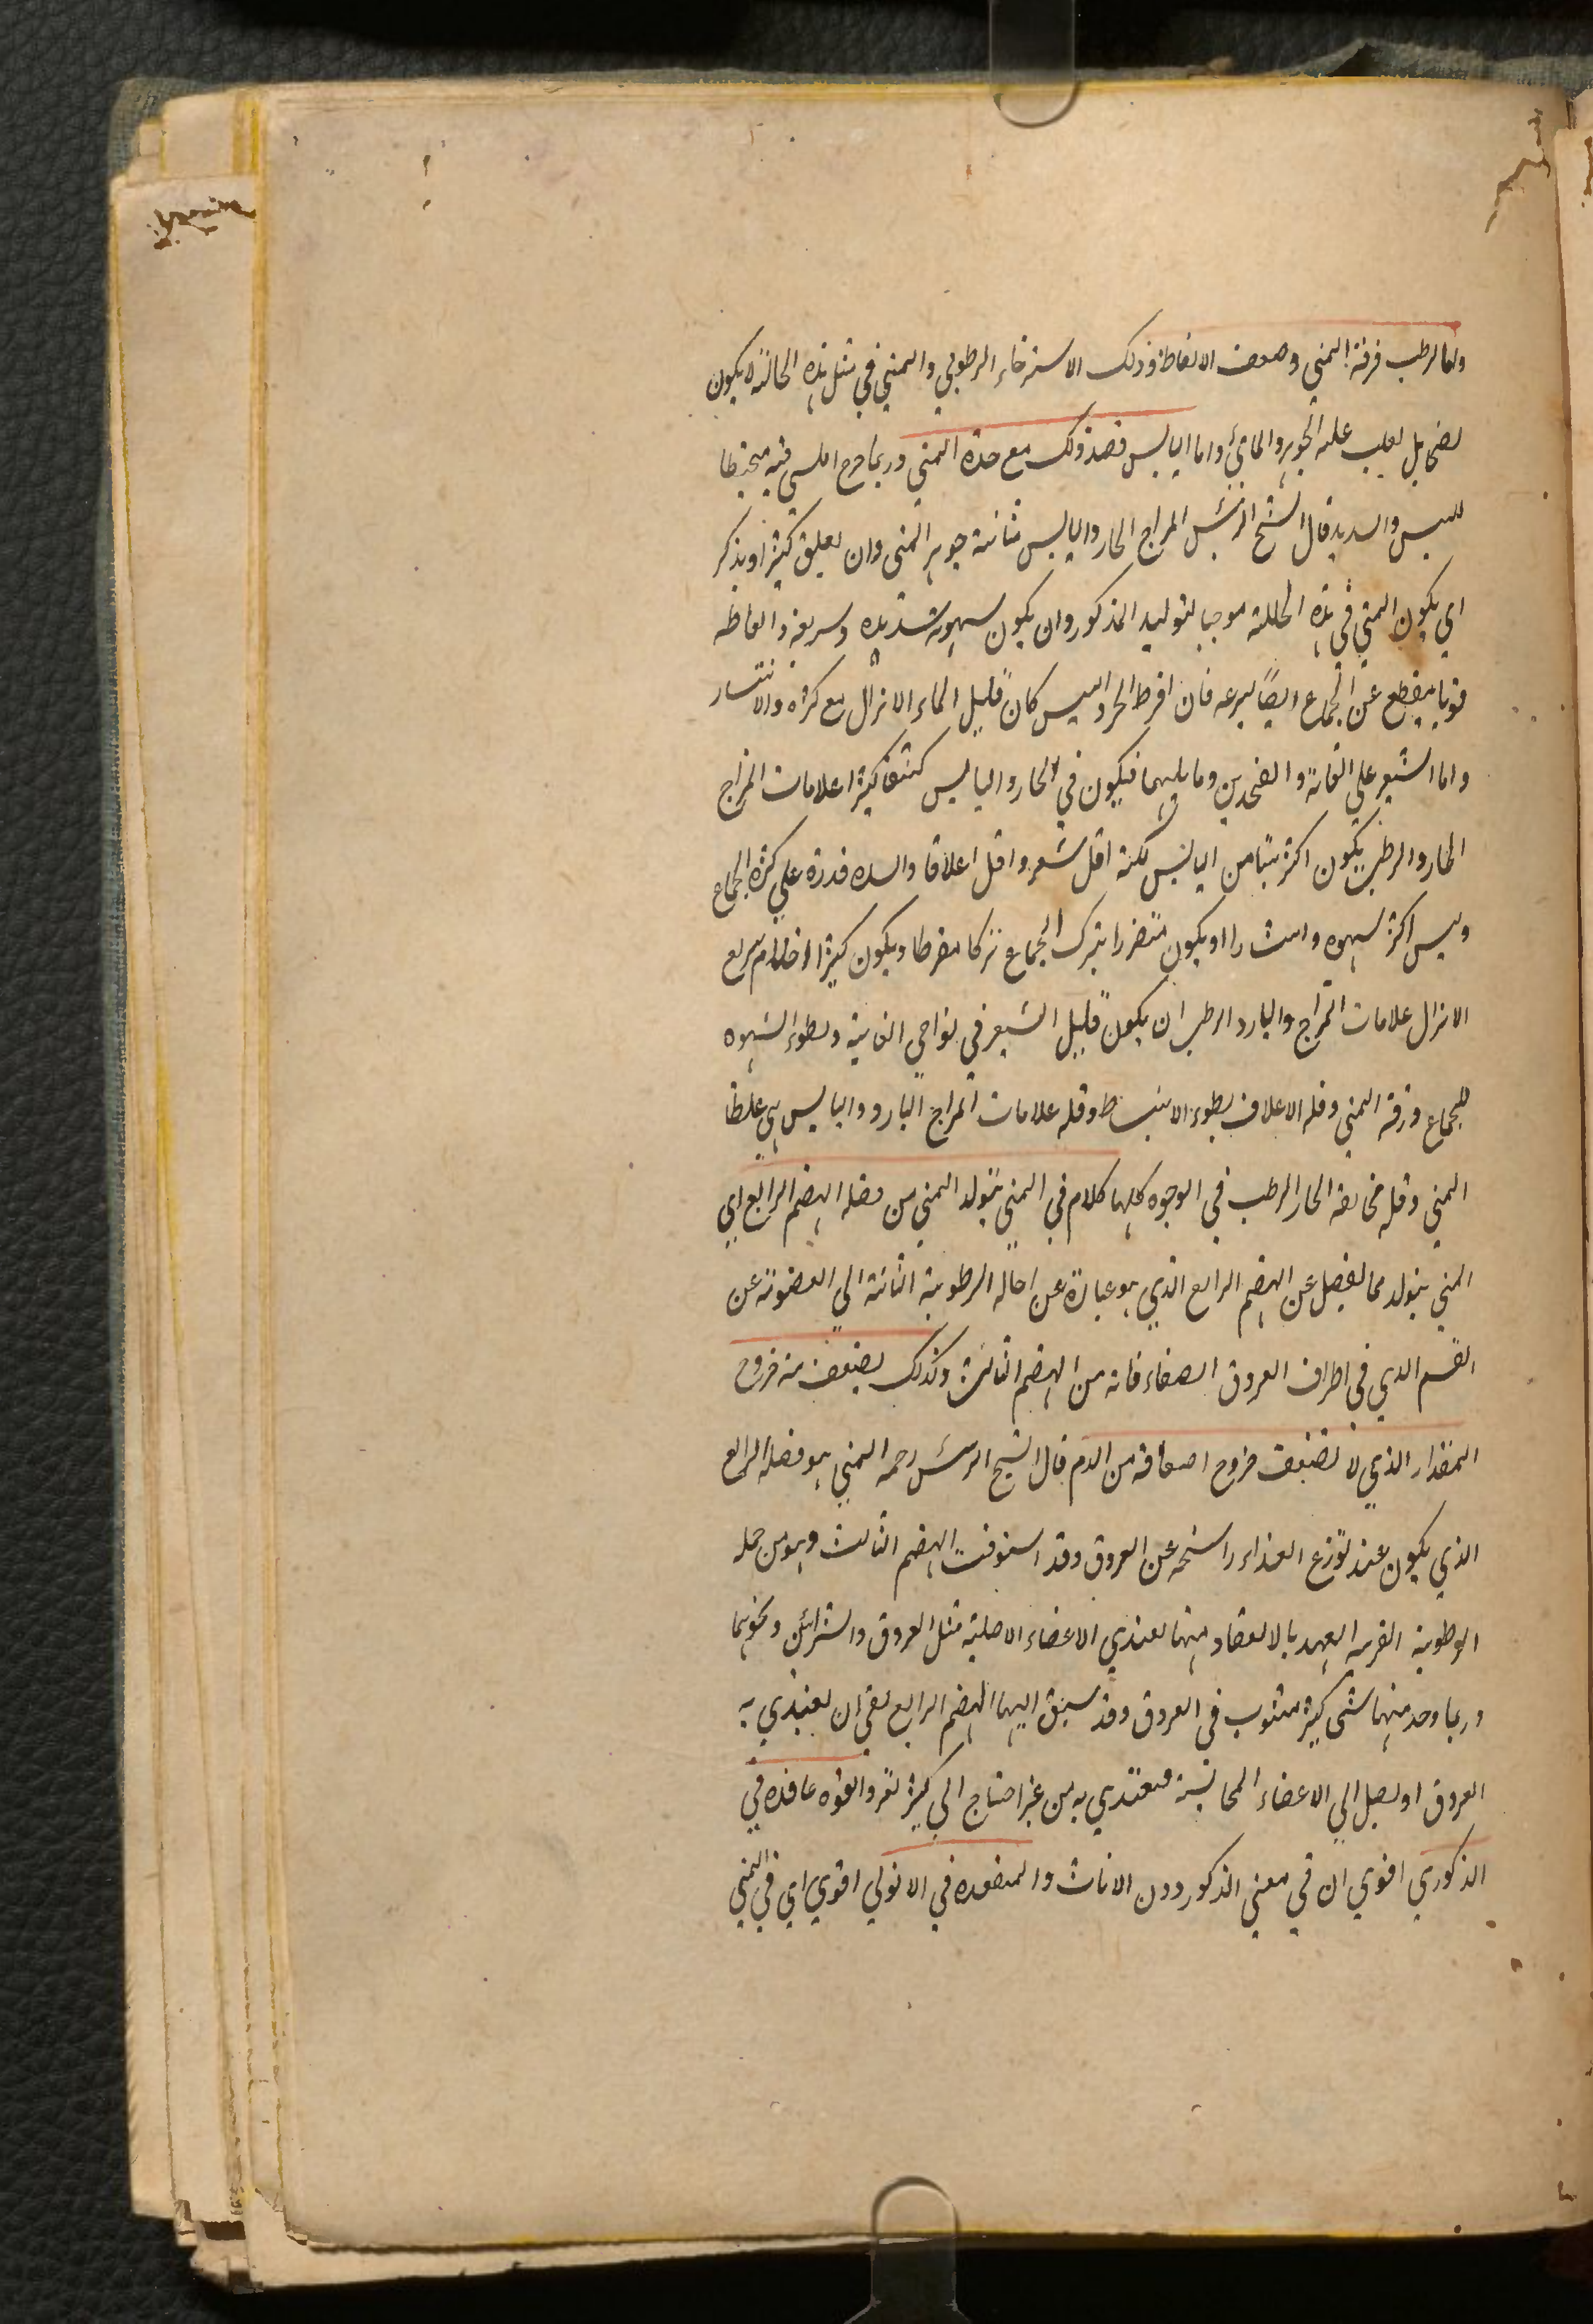 واما الرطب فرقة المني وضعف الانعاظ وذلك الاسترخاء الرطوبي والمني في مثل هذه الحالة لا يكون
نضجا بل يغلب عليه الجوهر المائي واما اليابس فضد ذلك مع حدة المني وربما خرج المني فيه متخيطا
لليبس والسديد قال الشيخ الرئيس المزاج الحار واليابس متانة جوهر المني وان يعلق كثيرا ويذكر
اي يكون المني في هذه الحالة موجبا لتوليد المذكور وان يكون شهوته شديده وسريعة وانعاظه
قويا ينقطع عن الجماع ايضا بسرعه فان افرط الحر واليبس كان قليل الماء الانزال مع كثرة والانتشار
واما الشعر علي العانة والفخذين وما يليهما فيكون في الحار واليابس كثيفا كثيرا علامات المزاج
الحار والرطب يكون اكثر منيا من اليابس لكنه اقل شعر واقل اعلاقا واشده قدرة علي كثرة الجماع
وليس اكثر شهوه وانتشارا ويكون متضررا بترك الجماع تركا مفرطا ويكون كثير الاحتلام سريع
الانزال علامات المزاج والبارد الرطب ان يكون قليل الشعر في نواحي العانية وبطوء الشهوه
للجماع ورقة المني وقله الاعلاق بطوء الانبساط وقله علامات المزاج البارد واليابس هي غلظ
المني وقله مخالفه الحار الرطب في الوجوه كلها كلام في المني يتولد المني من فضله الهضم الرابع اي
المني يتولد مما يفضل عن الهضم الرابع الذي هو عبارة عن احاله الرطوبية الثانية الي العضوية عن
القسم الذي في اطراف العروق الصغار فانه من الهضم الثالث وكذلك يضعف منه خروج
المقدار الذي لا يضعف خروج اضعافه من الدم قال الشيخ الرئيس رحمه المني هو فضله الرابع
الذي يكون عند توزع الغذاء راشحه عن العروق وقد استوفت الهضم الثالث وهو من جمله
الرطوبية القريبه العهد بالانعقاد ومنها يغتذي الاعضاء الاصلية مثل العروق والشرائين ونحوهما
وربما وجد منها شي كثير مبثوث في العروق وقد سبق اليها الهضم الرابع بقي ان يغتذي به
العروق او يصل الي الاعضاء المجانسة فيغتذي به من غير احتياج الي كثير تغير والقوة عاقده في
الذكوري اقوي ان في معني الذكور دون الاناث والمنعقده في الانوثي اقوي اي في المني